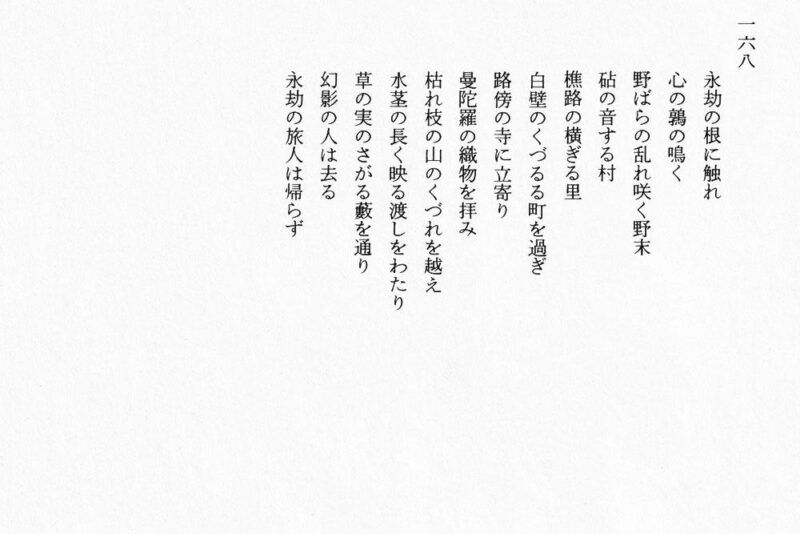 一六八
永劫の根に触れ
心の鶉の鳴く
野ばらの乱れ咲く野末
砧の音する村
樵路の横ぎる里
白壁のくづるる町を過ぎ
路傍の寺に立寄り
曼陀羅の織物を拝み
枯れ枝の山のくづれを越え
水茎の長く映る渡しをわたり
草の実のさがる藪を通り
幻影の人は去る
永劫の旅人は帰らず